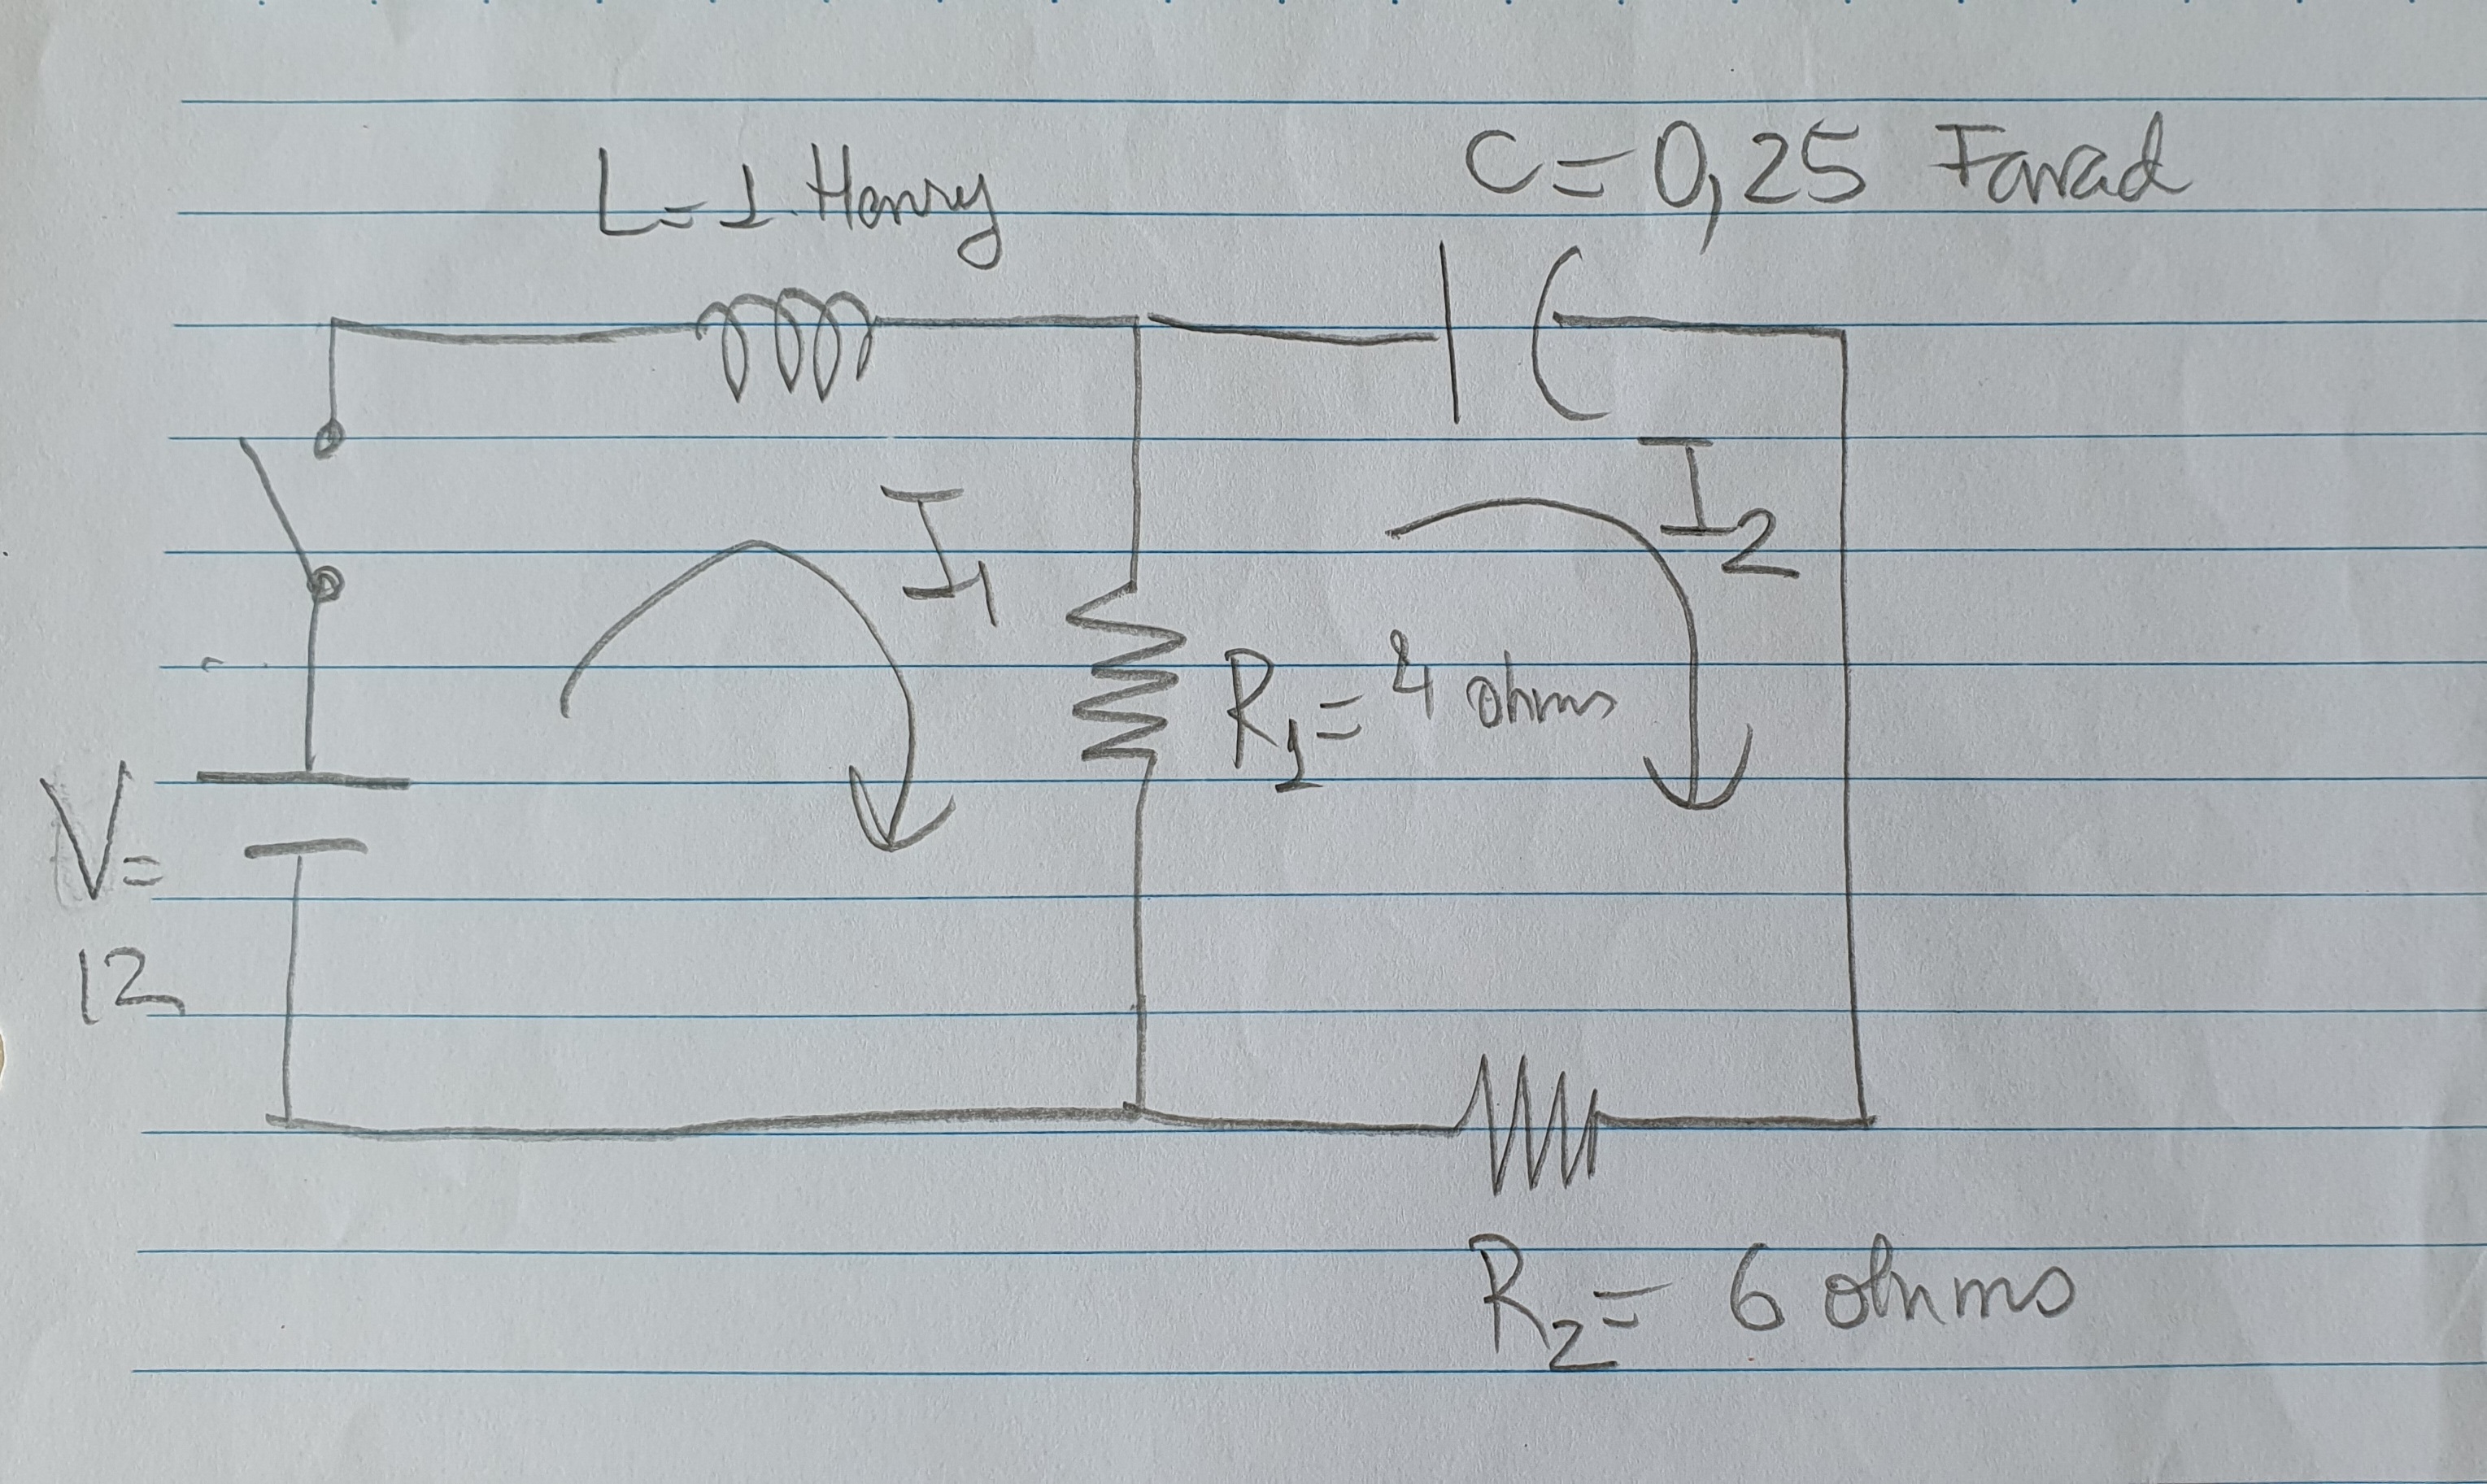 L=1 Henry
C=0,25 Farad
I1
I2
R1= 4 ohms
V=
12
R2= 6 ohms